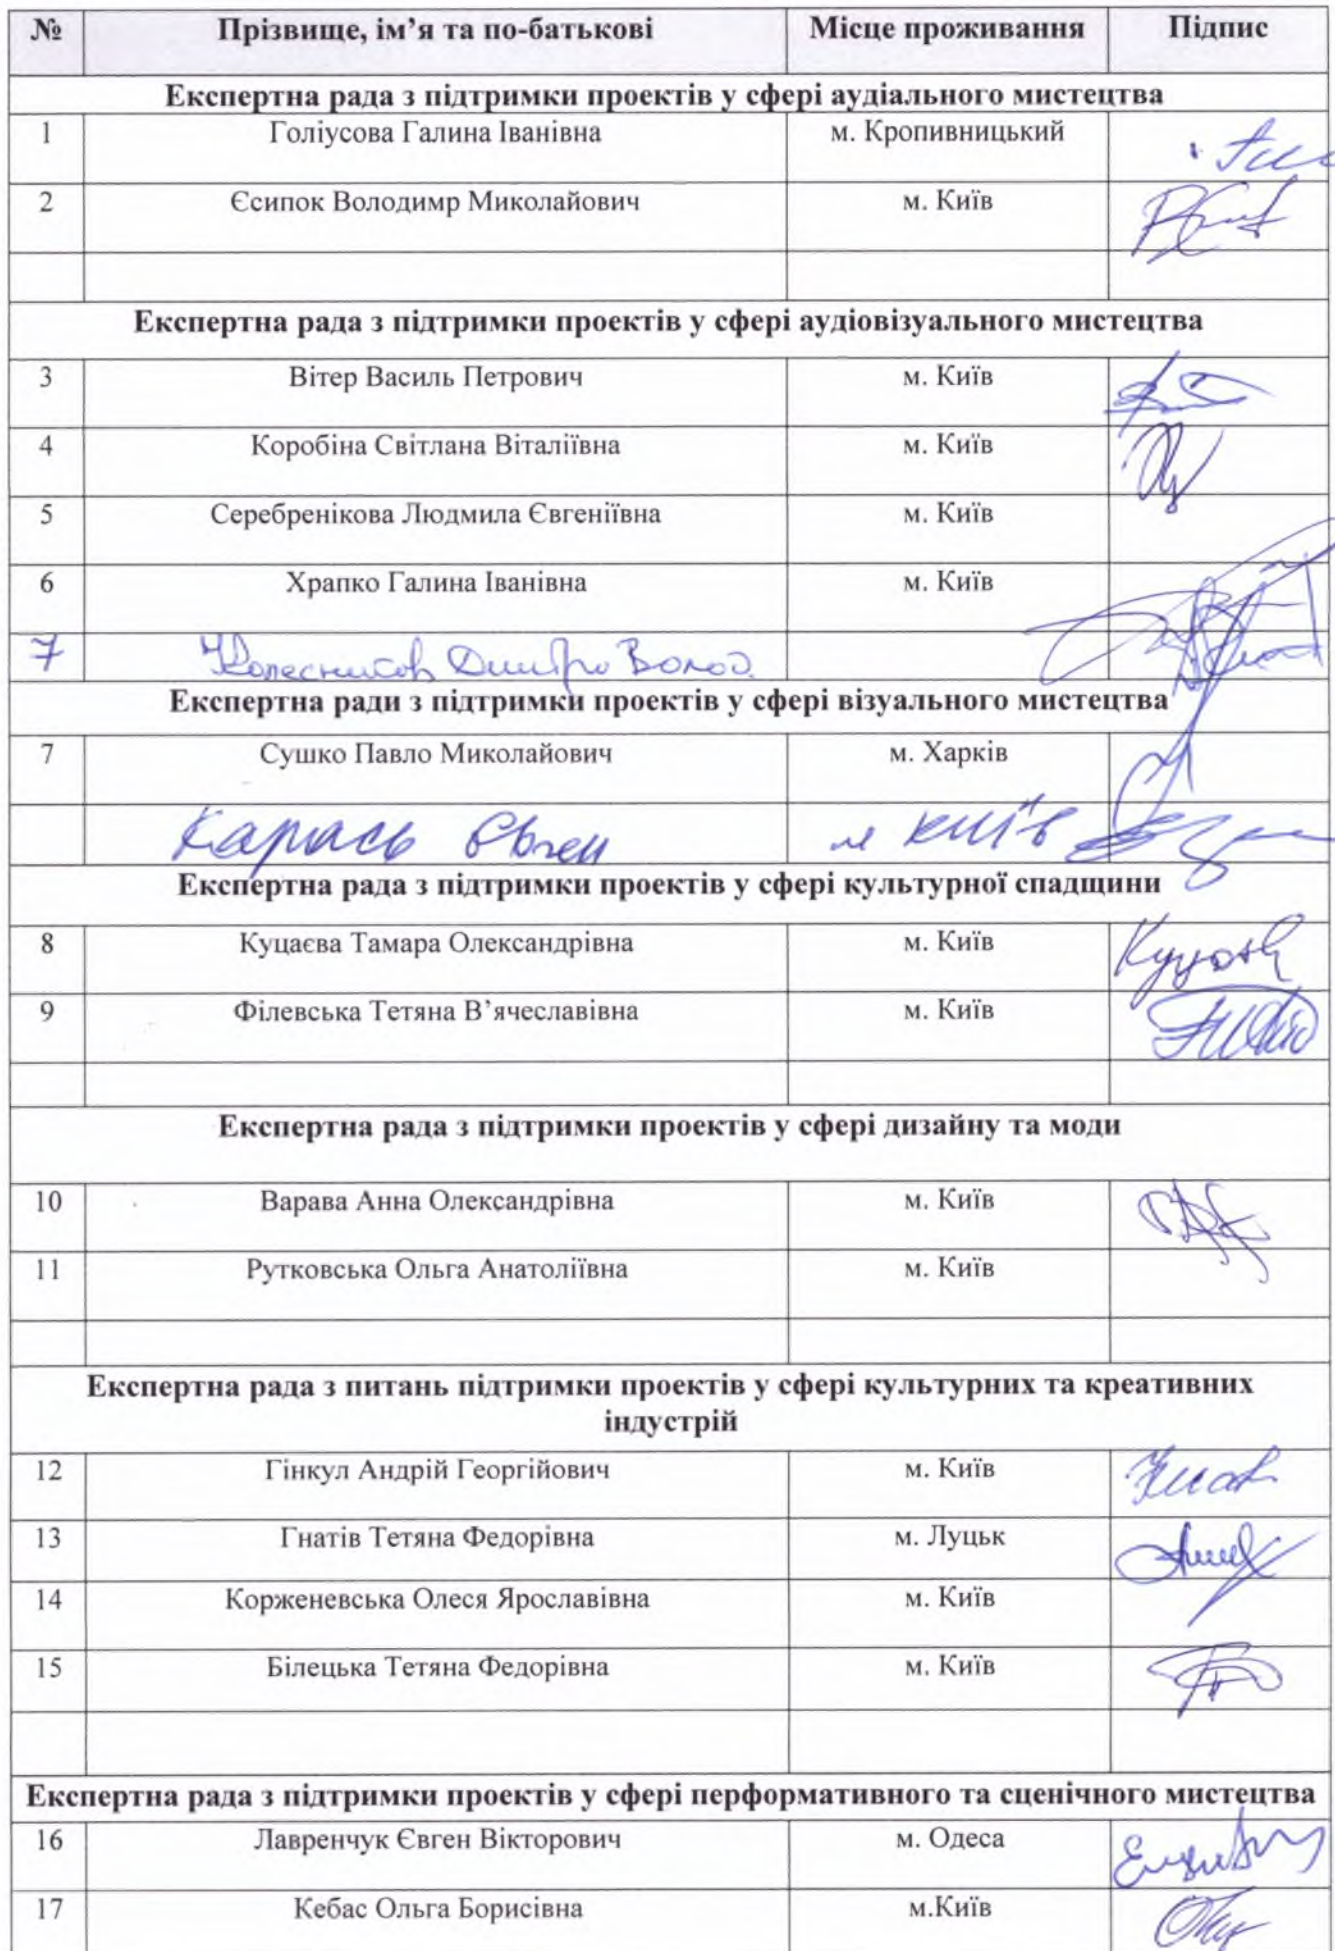 № Прізвище, ім’я та по-батькові Місце проживання Підпис
Експертна рада з підтримки проектів у сфері аудіального мистецтва
1 Голіусова Галина Іванівна м. Кропивницький
2 Єсипок Володимр Миколайович м. Київ
Експертна рада з підтримки проектів у сфері аудіовізуального мистецтва
3 Вітер Василь Петрович м. Київ
4 Коробіна Світлана Віталіївна м. Київ
5 Серебренікова Людмила Євгеніївна м. Київ
6 Храпко Галина Іванівна м. Київ
7 Колесников Дмитро Волод.
Експертна ради з підтримки проектів у сфері візуального мистецтва
7 Сушко Павло Миколайович м. Харків
Карась Євген м Київ
Експертна рада з підтримки проектів у сфері культурної спадщини
8 Куцаєва Тамара Олександрівна м. Київ
9 Філевська Тетяна В’ячеславівна м. Київ
Експертна рада з підтримки проектів у сфері дизайну та моди
10 Варава Анна Олександрівна м. Київ
11 Рутковська Ольга Анатоліївна м. Київ
Експертна рада з питань підтримки проектів у сфері культурних та креативних
індустрій
12 Гінкул Андрій Георгійович м. Київ
13 Гнатів Тетяна Федорівна м. Луцьк
14 Корженевська Олеся Ярославівна м. Київ
15 Білецька Тетяна Федорівна м. Київ
Експертна рада з підтримки проектів у сфері перформативного та сценічного мистецтва
16 Лавренчук Євген Вікторович м. Одеса
17 Кебас Ольга Борисівна м.Київ